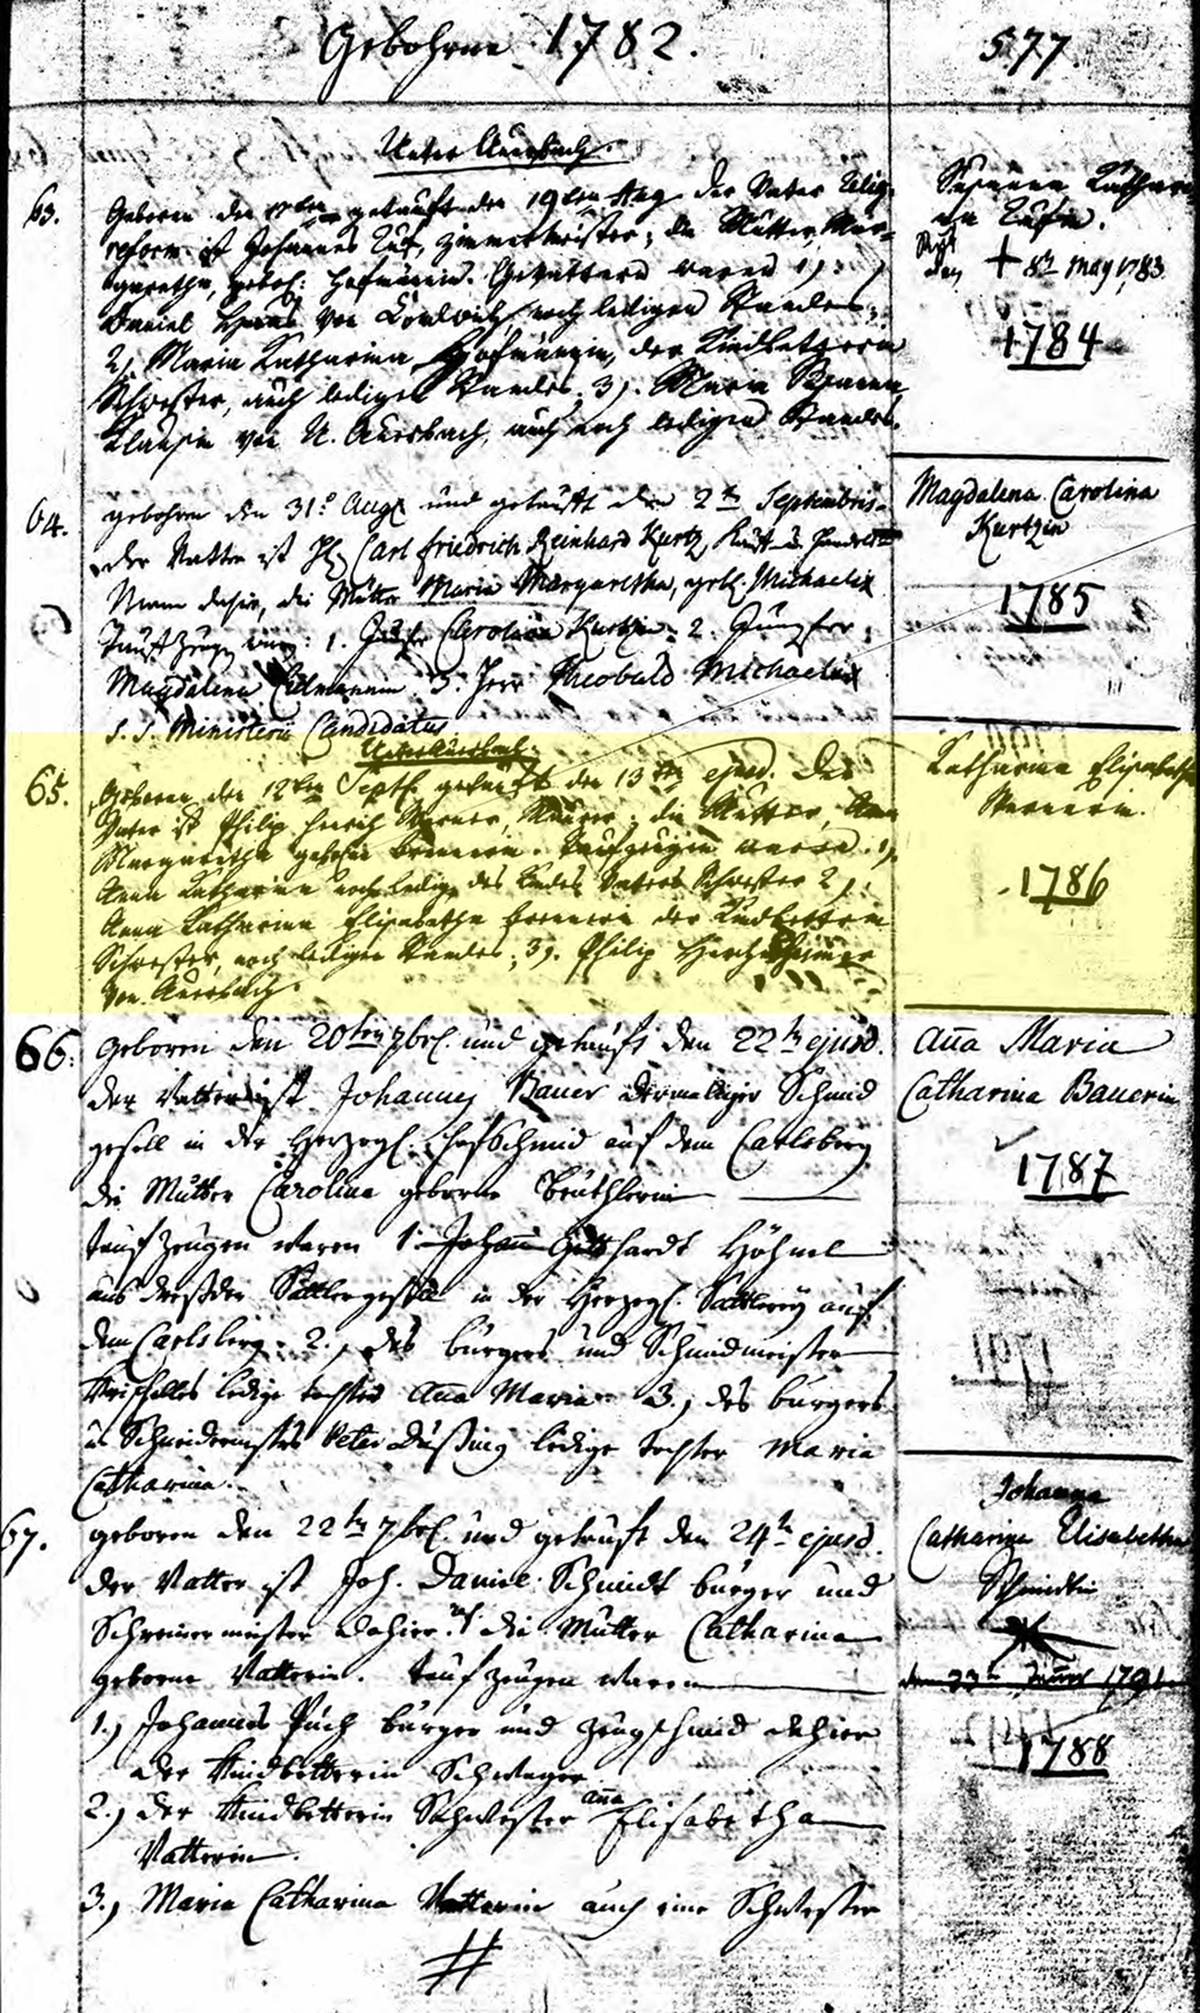 Gebohrne 1782.
577
Unter Auerbach.
63.
Geboren den 17ten getauft den 19ten Aug. Der Vater
reform. ist Johannes Zimmermeister; die Mutter, Mar-
garetha, gebol: Hofmännin. Gevattern waren 1).
Daniel von noch ledigen Standes;
2). Maria Katharina Hofmännin, der Kindbetterin
Schwester, auch ledigen Standes; 3). Maria Susanna
von U. Auerbach, auch noch ledigen Standes.
Susanna Kathar
ina
den + 8ten May 1783
1784
64.
gebohren den 31. Aug. und getaufft den 2ten Septembris.
der Vatter ist H. Carl Friedrich Reinhard Kurtz, Kauf- u. Handels
Mann dahier, die Mutter Maria Margaretha, gebl. Michaelis
Tauff Zeugen 1. Carolina Kurtzin 2. Jungfer
Magdalena 3. Herr Theobald Michaelis
S. S. Ministerii Candidatus
Magdalena Carolina
Kurtzin
1785
Unter Auerbach.
65.
Geboren den 12ten Septbr getauft den 13ten ejusd. Der
Vater ist Philip Henrich Werner, Maurer; die Mutter, Anna
Margaretha geborne. Taufzeugen waren 1).
Anna Katharina noch ledige des Kindes Vaters Schwester 2).
Anna Katharina Elisabetha der Kindbetterin
Schwester, noch ledigen Standes; 3). Philip
von Auerbach.
Katharina Elisabetha
Wernerin.
1786
66.
Geboren den 20ten 7brl. und getauft den 22ten ejusd.
der Vatter ist Johannes Bauer dermaliger Schmid
gesell in der Herzogl. Hofschmid auf dem Carlsberg
die Mutter Carolina geborne Beuthlerin
tauf Zeugen waren 1. Johann Gotthardt Höhnel
aus Dresden Sattlergesell in der Herzogl. Sattlerey auf
dem Carlsberg. 2., des burgers und Schmidmeister
ledige tochter Anna Maria 3., des burgers
u. Schneidermstrs Peter Düßing ledige tochter Maria
Catharina.
Anna Maria
Catharina Bauerin
1787
67.
geboren den 22ten 7brl. und getauft den 24ten ejusd.
der Vatter ist Joh. Daniel Schmidt burger und
Schreinermeister dahier. die Mutter Catharina
geborne Vatterin. tauf zeugen waren
1.) Johannes Puch burger und Zeugschmid dahier
der Kindbetterin Schwager
2.) der Kindbetterin Schwester Anna Elisabetha
Vatterin.
3.) Maria Catharina Vatterin auch eine Schwester
Johanna
Catharina Elisabetha
Schmidtin
1788